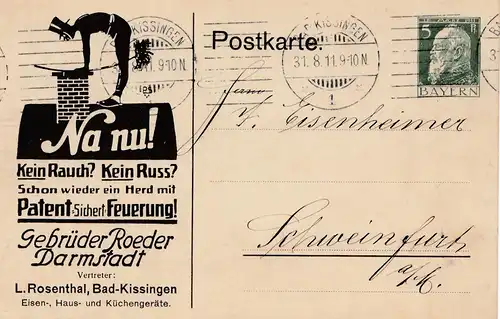 BAD KISSINGEN
31.8.11.9-10N.
1
Postkarte.
5
BAYERN
Na nu!
Kein Rauch? Kein Russ?
Schon wieder ein Herd mit
Patent-Sichert-Feuerung!
Gebrüder Roeder
Darmstadt
Vertreter:
L. Rosenthal, Bad-Kissingen
Eisen-, Haus- und Küchengeräte.
Herrn
F. Eisenheimer
Schweinfurt
a/M.